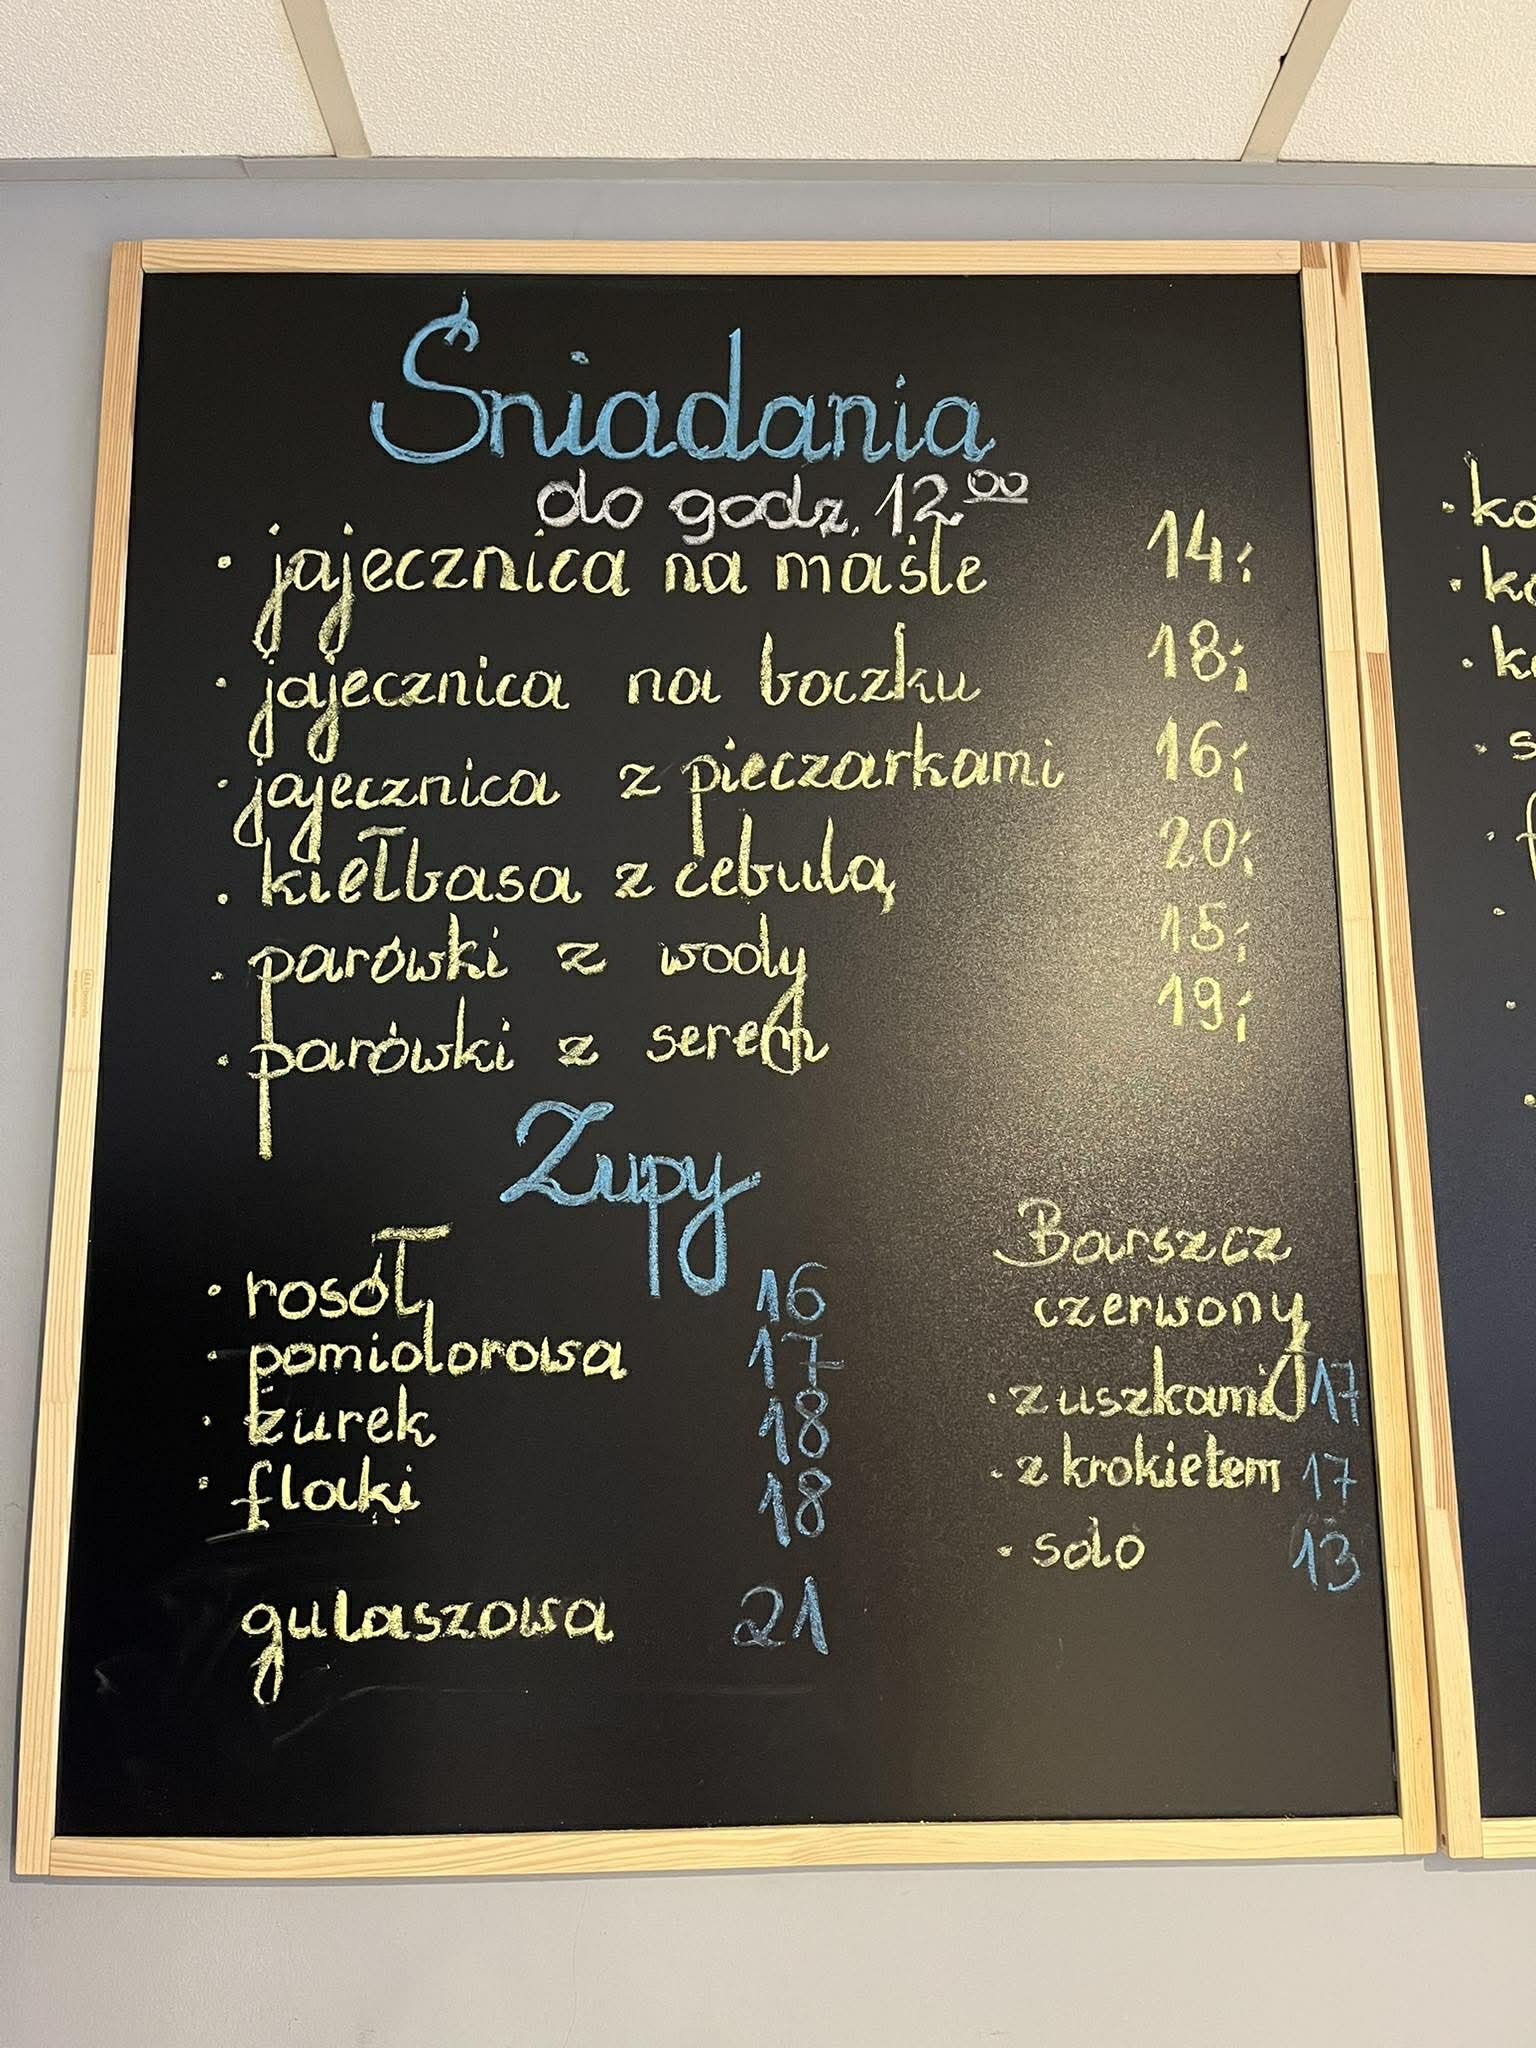 Śniadania
do godz. 12⁰⁰
· jajecznica na maśle 14,-
· jajecznica na boczku 18,-
· jajecznica z pieczarkami 16,-
· kiełbasa z cebulą 20,-
· parówki z wody 15,-
· parówki z serem 19,-
Zupy
· rosół 16
· pomidorowa 17
· żurek 18
· flaki 18
gulaszowa 21
Barszcz
czerwony
· z uszkami 17
· z krokietem 17
· solo 13